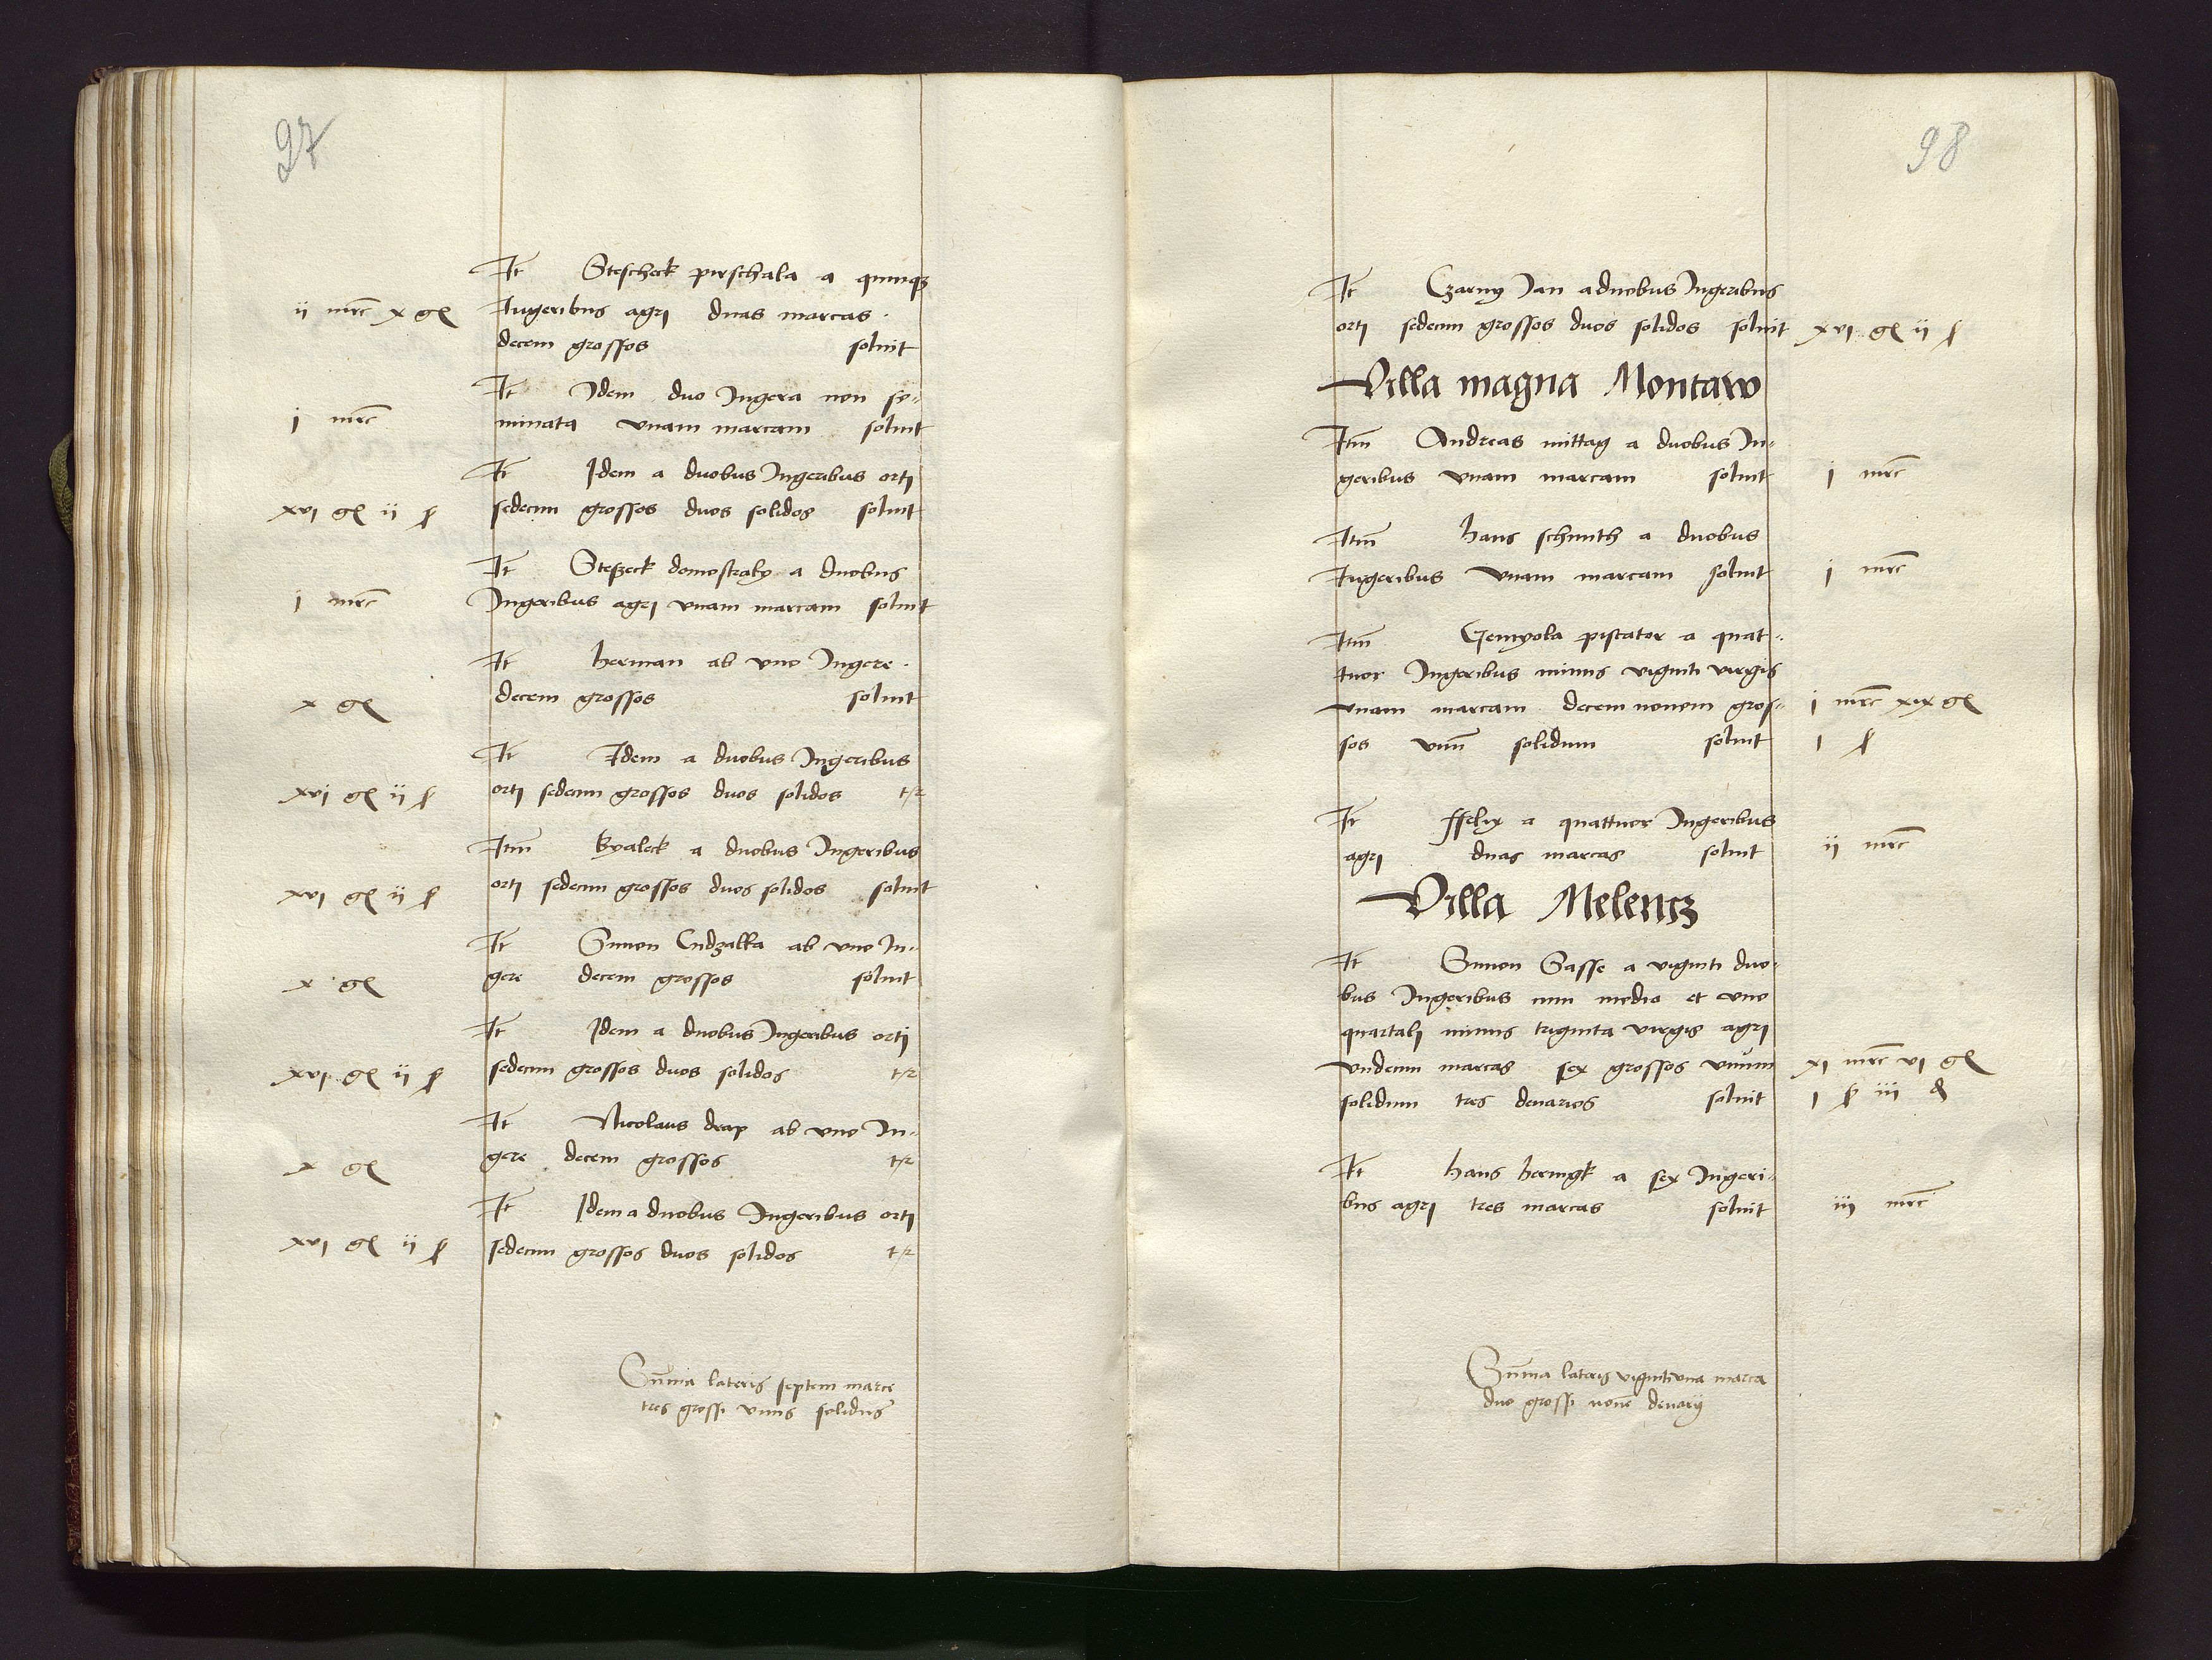 97
It Stescheck pirschala a quinqz
ii mrc x gl Iugeribus agri duas marcas ·
decem grossos soluit
It Idem duo Iugera non se-
i mrc minata vnam marcam soluit
It Idem a duobus Iugeribus orti
xvi gl ii ſ sedecim grossos duos solidos soluit
It Steßeck domostraly a duobus
i mrc Iugeribus agri vnam marcam soluit
It herman ab vno Iugere ·
x gl decem grossos soluit
It Idem a duobus Iugeribus
xvi gl ii ſ orti sedecim grossos duos solidos t/z
Itm Byaleck a duobus Iugeribus
xvi gl ii ſ orti sedecim grossos duos solidos soluit
It Simon Cudzalka ab vno Iu-
x gl gere decem grossos soluit
It Idem a duobus Iugeribus orti
xvi gl ii ſ sedecim grossos duos solidos t/z
It Nicolaus drap ab vno Iu-
x gl gere decem grossos t/z
It Idem a duobus Iugeribus orti
xvi gl ii ſ sedecim grossos duos solidos t/z
Sum̄a lateris septem marce
tres grossi vnus solidus
98
It Czarny Jan a duobus Iugeribus
orti sedecim grossos duos solidos soluit xvi gl ii ſ
Villa magna Montaw
Itm Andreas mittag a duobus Iu-
geribus vnam marcam soluit i mrc
Itm hans schmith a duobus
Iugeribus vnam marcam soluit i mrc
Itm Gemyola piscator a quat-
tuor Iugeribus minus viginti virgis
vnam marcam decem nouem gros- i mrc xix gl
sos vnū solidum soluit i ſ
It ffelix a quattuor Iugeribus
agri duas marcas soluit ii mrc
Villa Melencz
It Simon Sasse a viginti duo-
bus Iugeribus cum medio et vno
quartali minus triginta virgis agri
vndecim marcas sex grossos vnum xi mrc vi gl
solidum tres denarios soluit i ſ iii d
It hans heringk a sex Iugeri-
bus agri tres marcas soluit iii mrc
Sum̄a lateris vigintivna marca
duo grossi nouē denarij